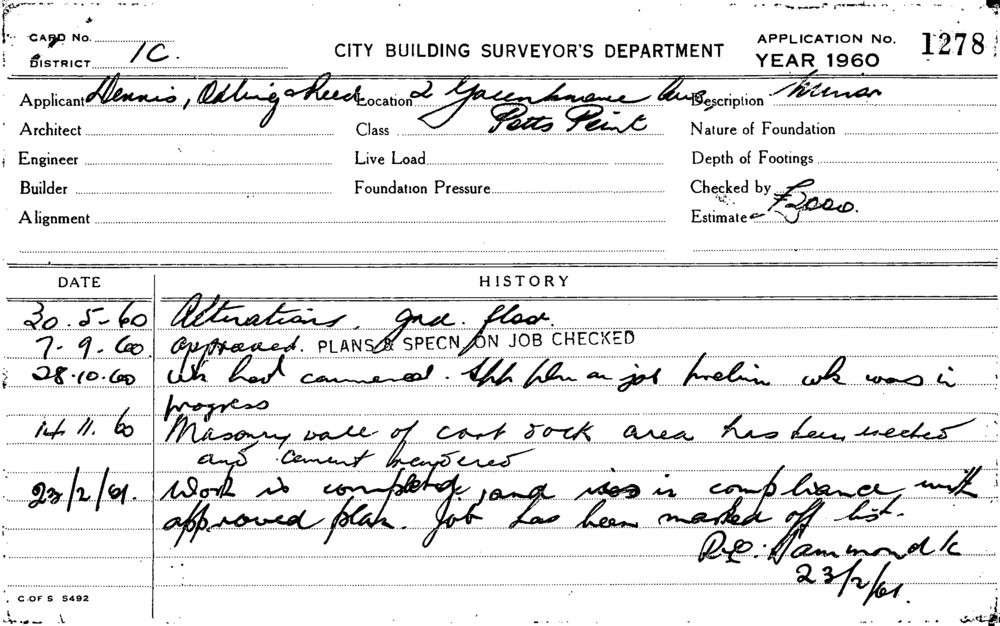 CARD No.
DISTRICT 1C.
CITY BUILDING SURVEYOR'S DEPARTMENT
APPLICATION No. 1278
YEAR 1960
Applicant Dennis, Odling & Reed Location 2 Greenknowe Ave Description Minor
Potts Point
Architect Class Nature of Foundation
Engineer Live Load Depth of Footings
Builder Foundation Pressure Checked by
Alignment Estimate £2000.
DATE HISTORY
30.5-60 Alterations, gnd. floor.
7-9.60. approved. PLANS & SPECN ON JOB CHECKED
28.10.60 wk had commenced. App pln on job prelim wk was in
progress
14.11.60 Masonry wall of cart dock area has been erected
and cement rendered
23/2/61. Work is completed, and is in compliance with
approved plan. Job has been marked off list.
Hammond
23/2/61.
C OF S 5492